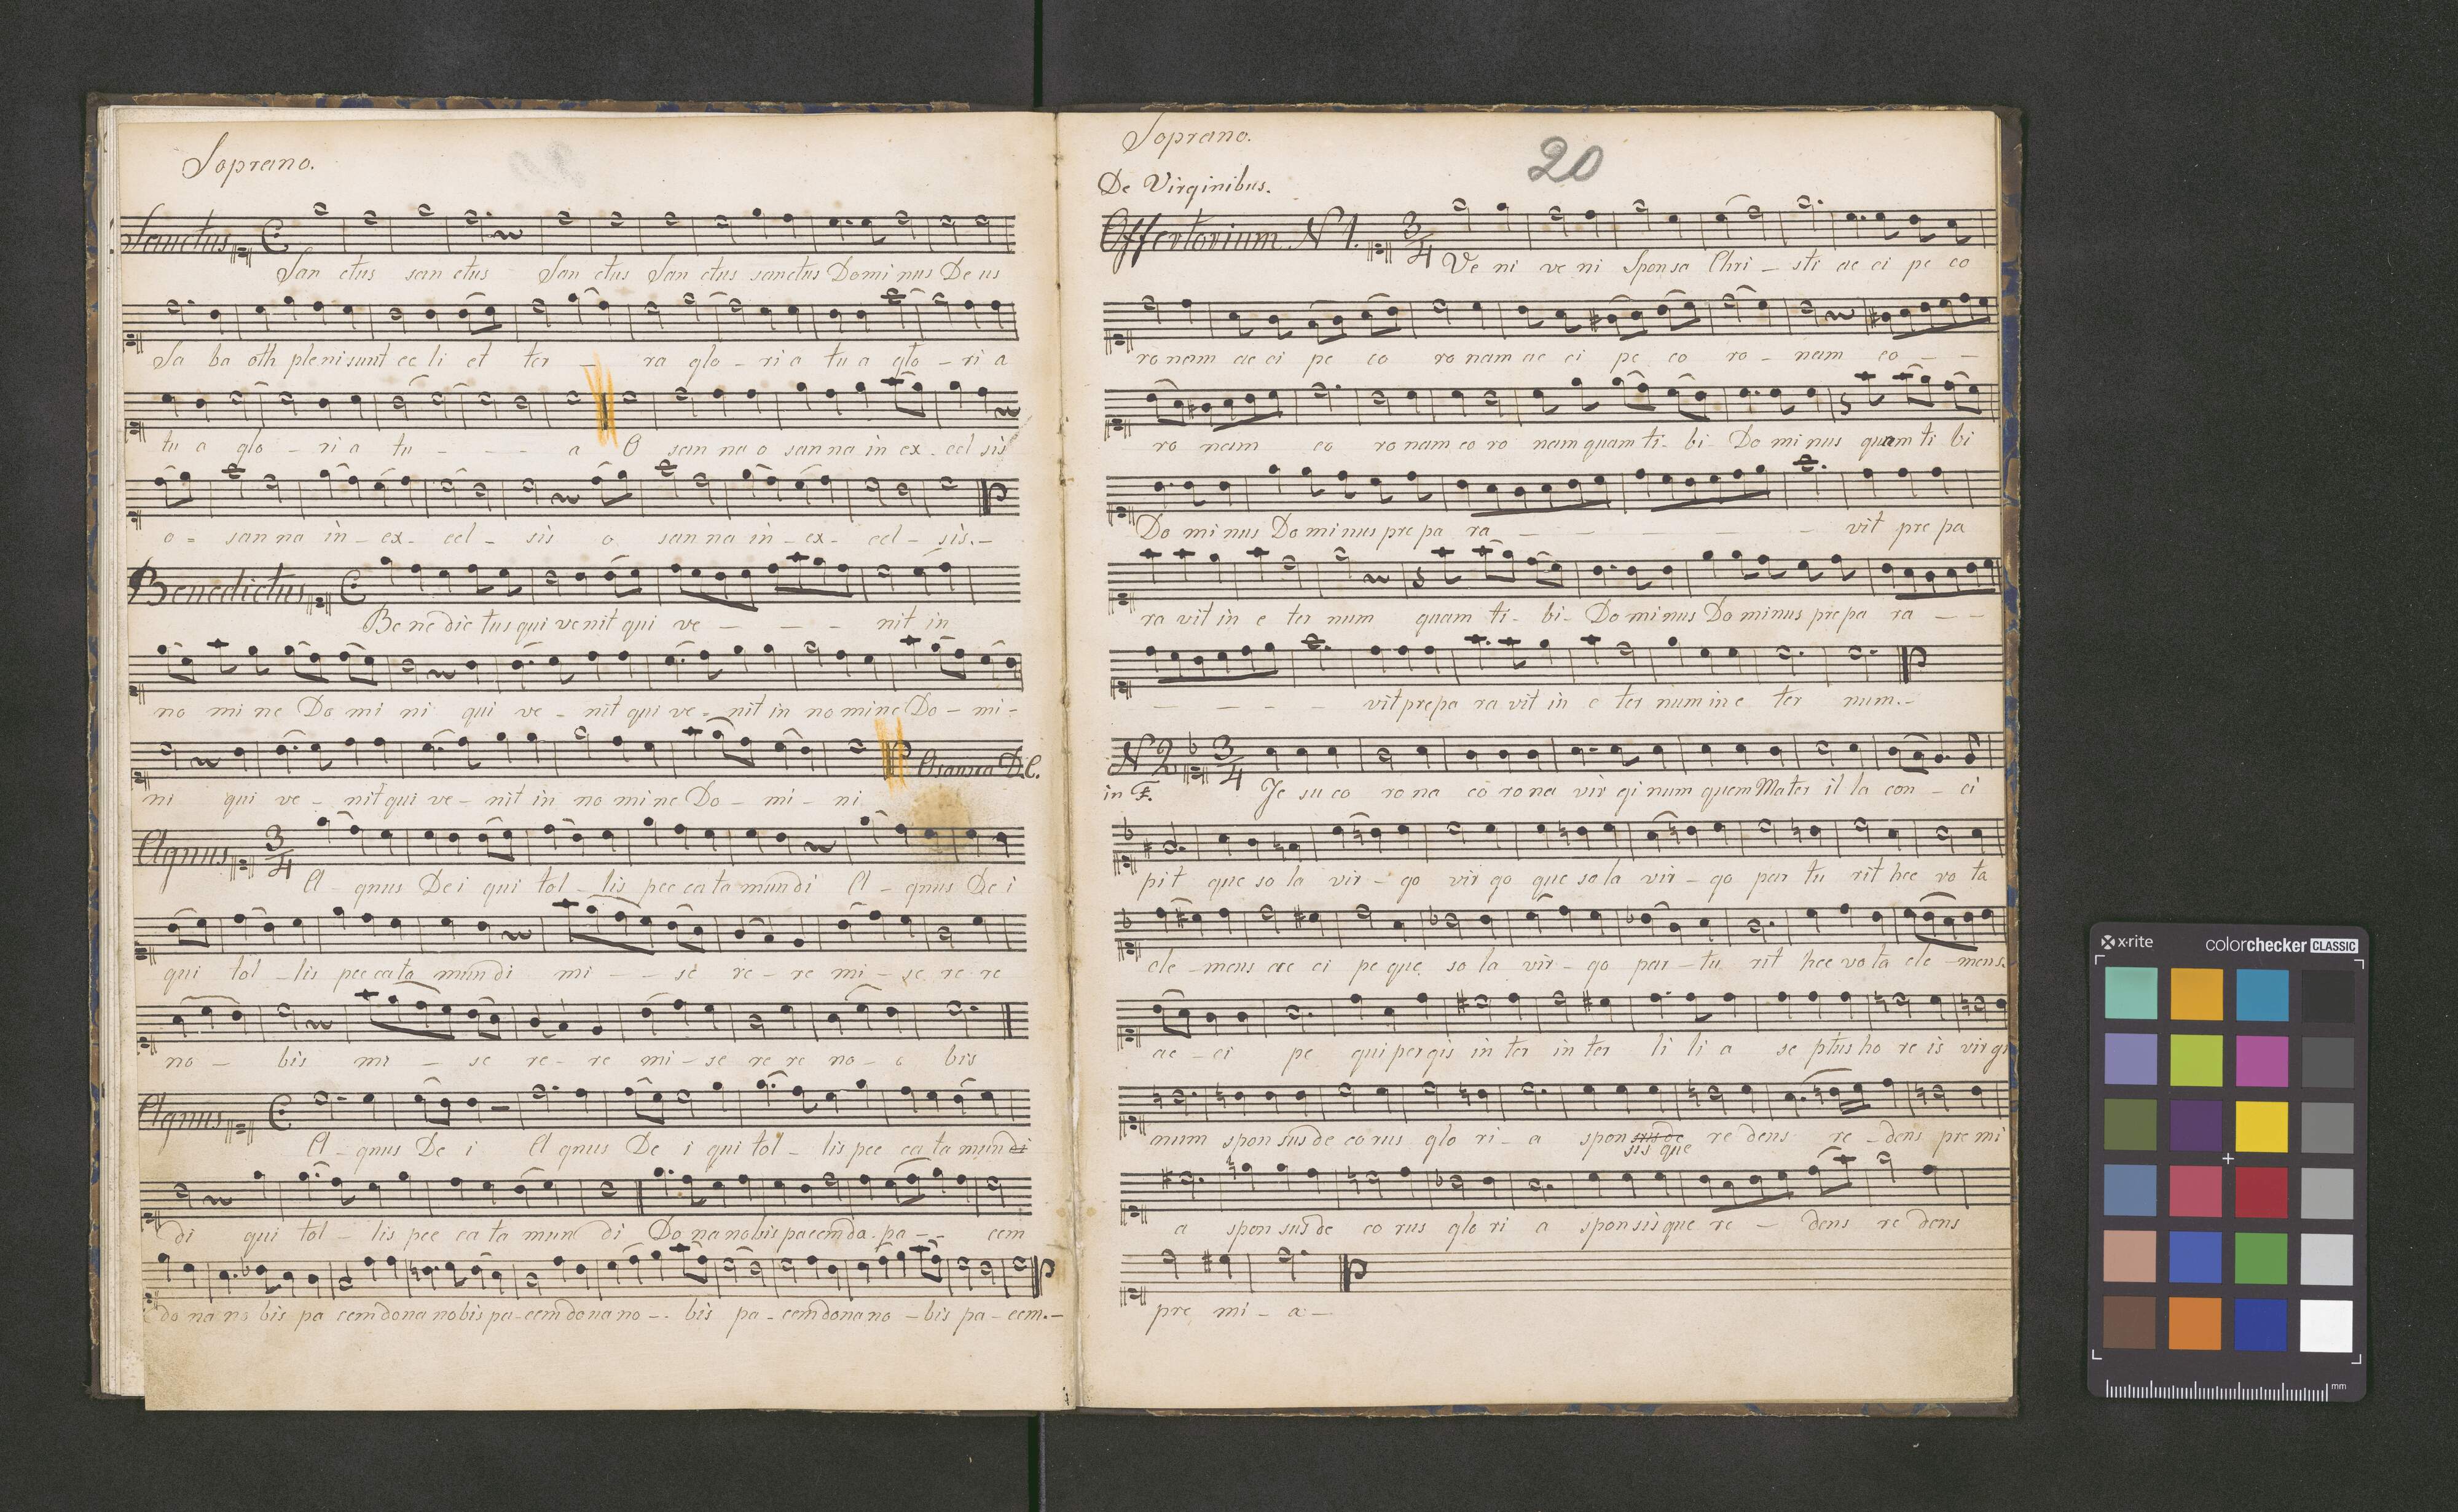 Soprano.
Sanctus
San ctus san ctus San ctus San ctus sanctus Domi nus De us
Sa ba oth pleni sunt ce li et ter - ra glo - ri a tu a glo - ri a
tu a glo - ri a tu - - - a O san na o san na in ex - cel sis
o - san na in - ex - cel - sis o san na in - ex - cel - sis.-
Benedictus
Be ne dic tus qui ve nit qui ve - - - nit in
no mi ne Do mi ni qui ve - nit qui ve - nit in no mi ne Do - mi -
Osanna D.C.
ni qui ve - nit qui ve - nit in no mi ne Do - mi - ni
Agnus 3/4
A - gnus De i qui tol - lis pec ca ta mun di A - gnus De i
qui tol - lis pec ca ta mun di mi - - se re - re mi - se re re
no - bis mi - se re - re mi - se re re no - o bis
Agnus
A - gnus De i A gnus De i qui tol - lis pec ca ta mun di
di qui tol - lis pec ca ta mun di Do na nobis pacem do - pa - - cem
do na no bis pa cem dona nobis pa - cem dona no - - bis pa - cem dona no - bis pa - cem.-
Soprano.
20
De Virginibus.
Offertorium N 1. 3/4
Ve ni ve ni Sponsa Chri - sti ac ci pe co
ro nam ac ci pe co ro nam ac ci pe co ro - nam co - -
ro nam co ro nam co ro nam quam ti - bi Do mi nus quam ti bi
Do mi nus Do mi nus pre pa ra - - - - - vit pre pa
ra vit in e ter num quam ti - bi - Do mi nus Do minus pre pa ra - -
- - - - vit pre pa ra vit in e ter num in e ter num.-
N 2 3/4
in F. Je su co ro na co ro na vir gi num quem Mater il la con - ci
pit que so la vir - go vir go que so la vir - go par tu rit hec vo ta
cle - mens ac ci pe que so la vir - go par - tu rit hec vo ta cle - mens.
ac - ci pe qui pergis in ter in ter li li a se ptus ho re is virgi
num spon sus de co rus glo ri - a spon sus de re dens re - dens pre mi
sis que
a spon sus de co rus glo ri a spon sis que re - dens re dens
pre mi - a -
x·rite colorchecker CLASSIC
mm